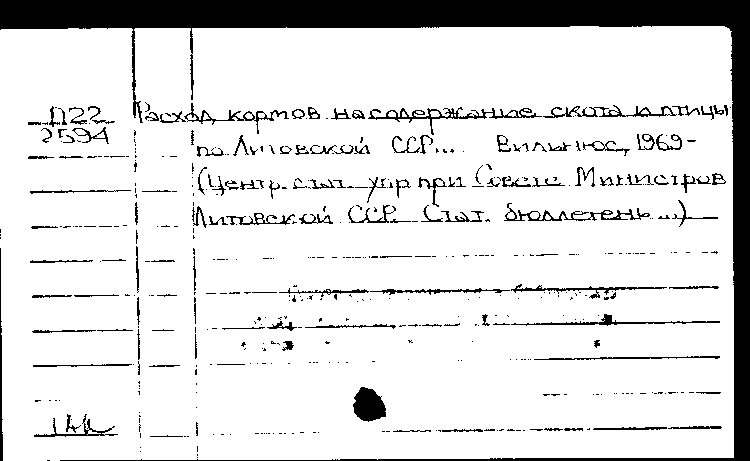 П22 Расход кормов на содержание скота и птицы
2594
по Литовской ССР... Вильнюс, 1969-
(Центр. стат. упр при Совете Министров
Литовской ССР. Стат. бюллетень ...)